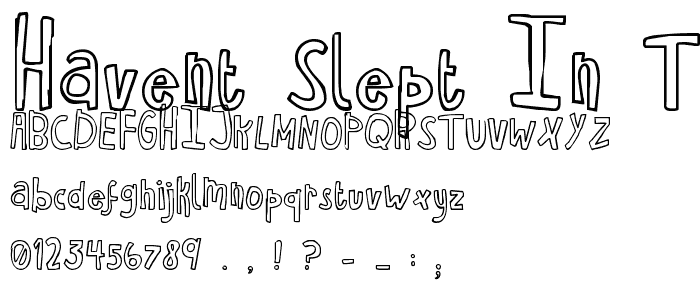 Havent Slept In T
ABCDEFGHIJKLMNOPQRSTUVWXYZ
abcdefghijklmnopqrstuvwxyz
0123456789 . , ! ? - _ : ;